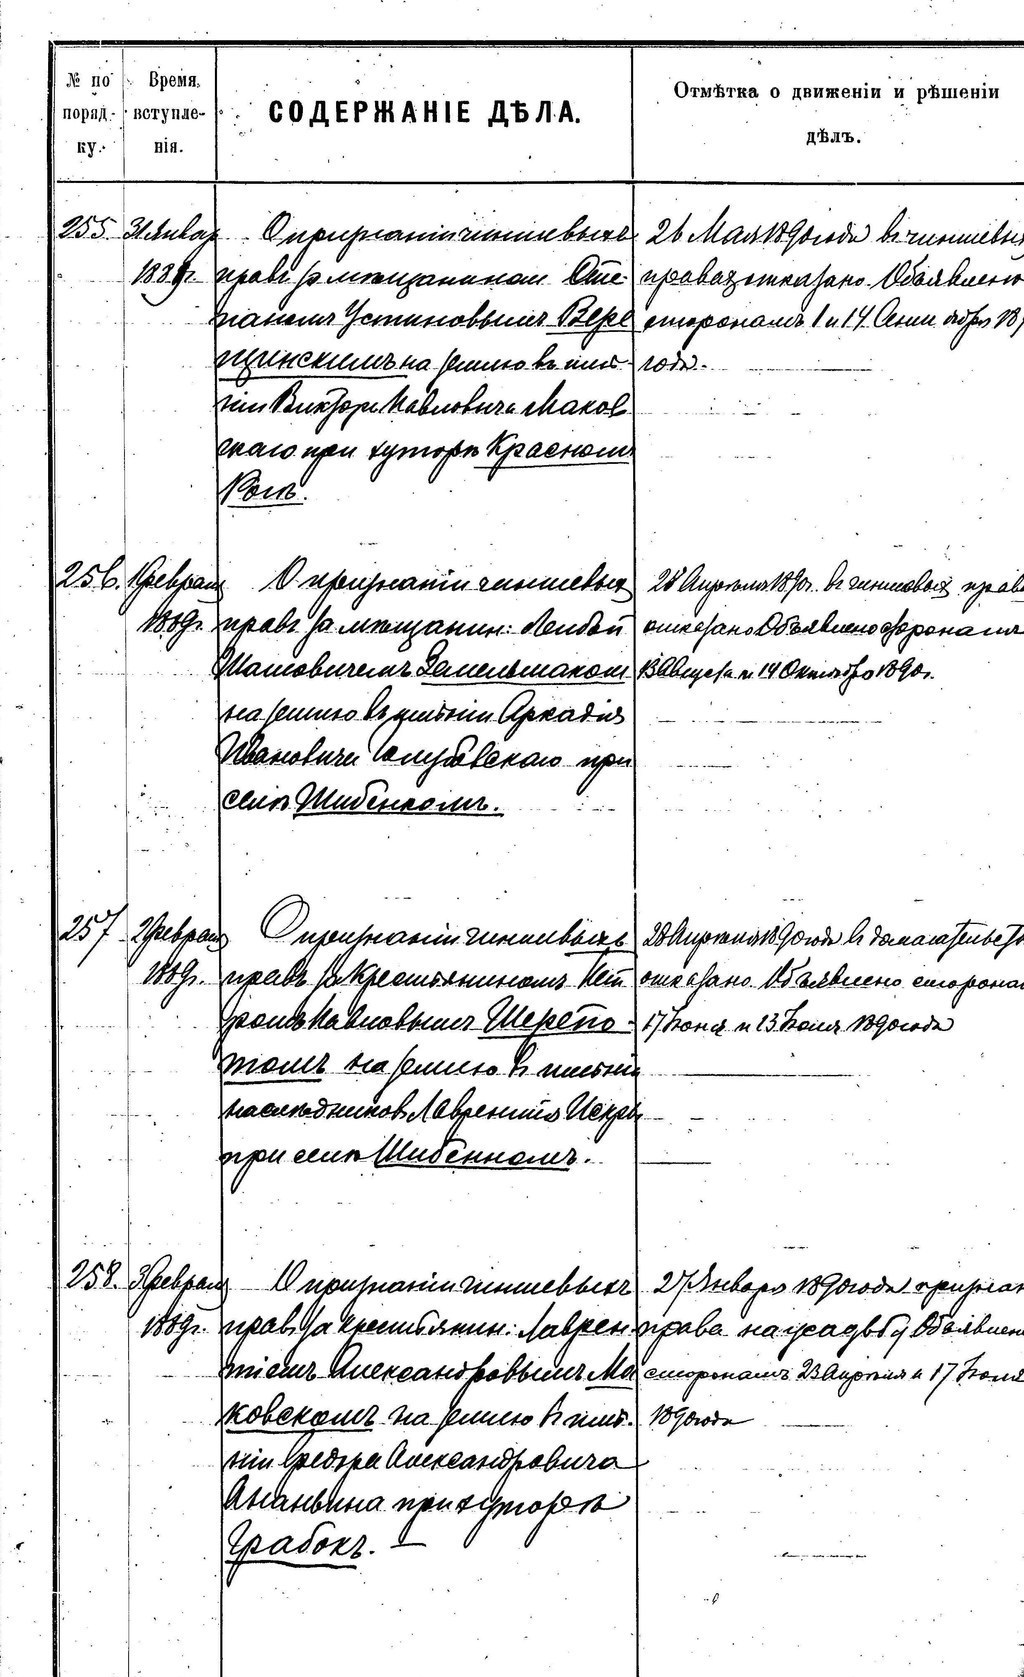 № по
поряд-
ку.
Время
вступле-
нія.
СОДЕРЖАНІЕ ДѢЛА.
Отмѣтка о движеніи и рѣшеніи
дѣлъ.
255. 31 Январ
1889г.
О признаніи чиншевыхъ
правъ за мѣщаниномъ Сте-
паномъ Устиновымъ Вере
щинскимъ на землю въ имѣ
ніи Виктора Павловича Маков
скаго при хуторѣ Красномъ
Розѣ.
26 Мая 1890 года въ чиншевых
правах отказано. Объявлено
сторонамъ 1 и 14 Сентября 18
года.
256. 1 Феврал
1889г.
О признаніи чиншевых
правъ за мѣщанин: Лейбой
на землю въ имѣніи Аркадія
Ивановича при
селѣ Шибенномъ.
28 Апрѣля 1890г. въ чиншевых права
отказано Объявлено сторонамъ
13 Августа и 14 Октября 1890г.
257 2 Феврал
1889г.
О признаніи чиншевыхъ
правъ за крестьяниномъ Пет
ромъ Павловымъ Шерепо-
томъ на землю въ имѣніи
наслѣдниковъ Лаврентія Искры
при селѣ Шибенномъ.
28 Апрѣля 1890 года въ домагательст
отказано Объявлено сторонам
17 Іюня и 23 Іюля 1890 года
258. 3 Феврал
1889г.
О признаніи чиншевыхъ
правъ за крестьянин: Лаврен
тіемъ Александровымъ Ма
ковскомъ на землю въ имѣ-
ніи Федора Александровича
Ананьина при хуторѣ
Грабокъ.
27 Января 1890 года признан
права на усадьбу Объявлен
сторонамъ 23 Апрѣля и 17 Іюня
1890 года